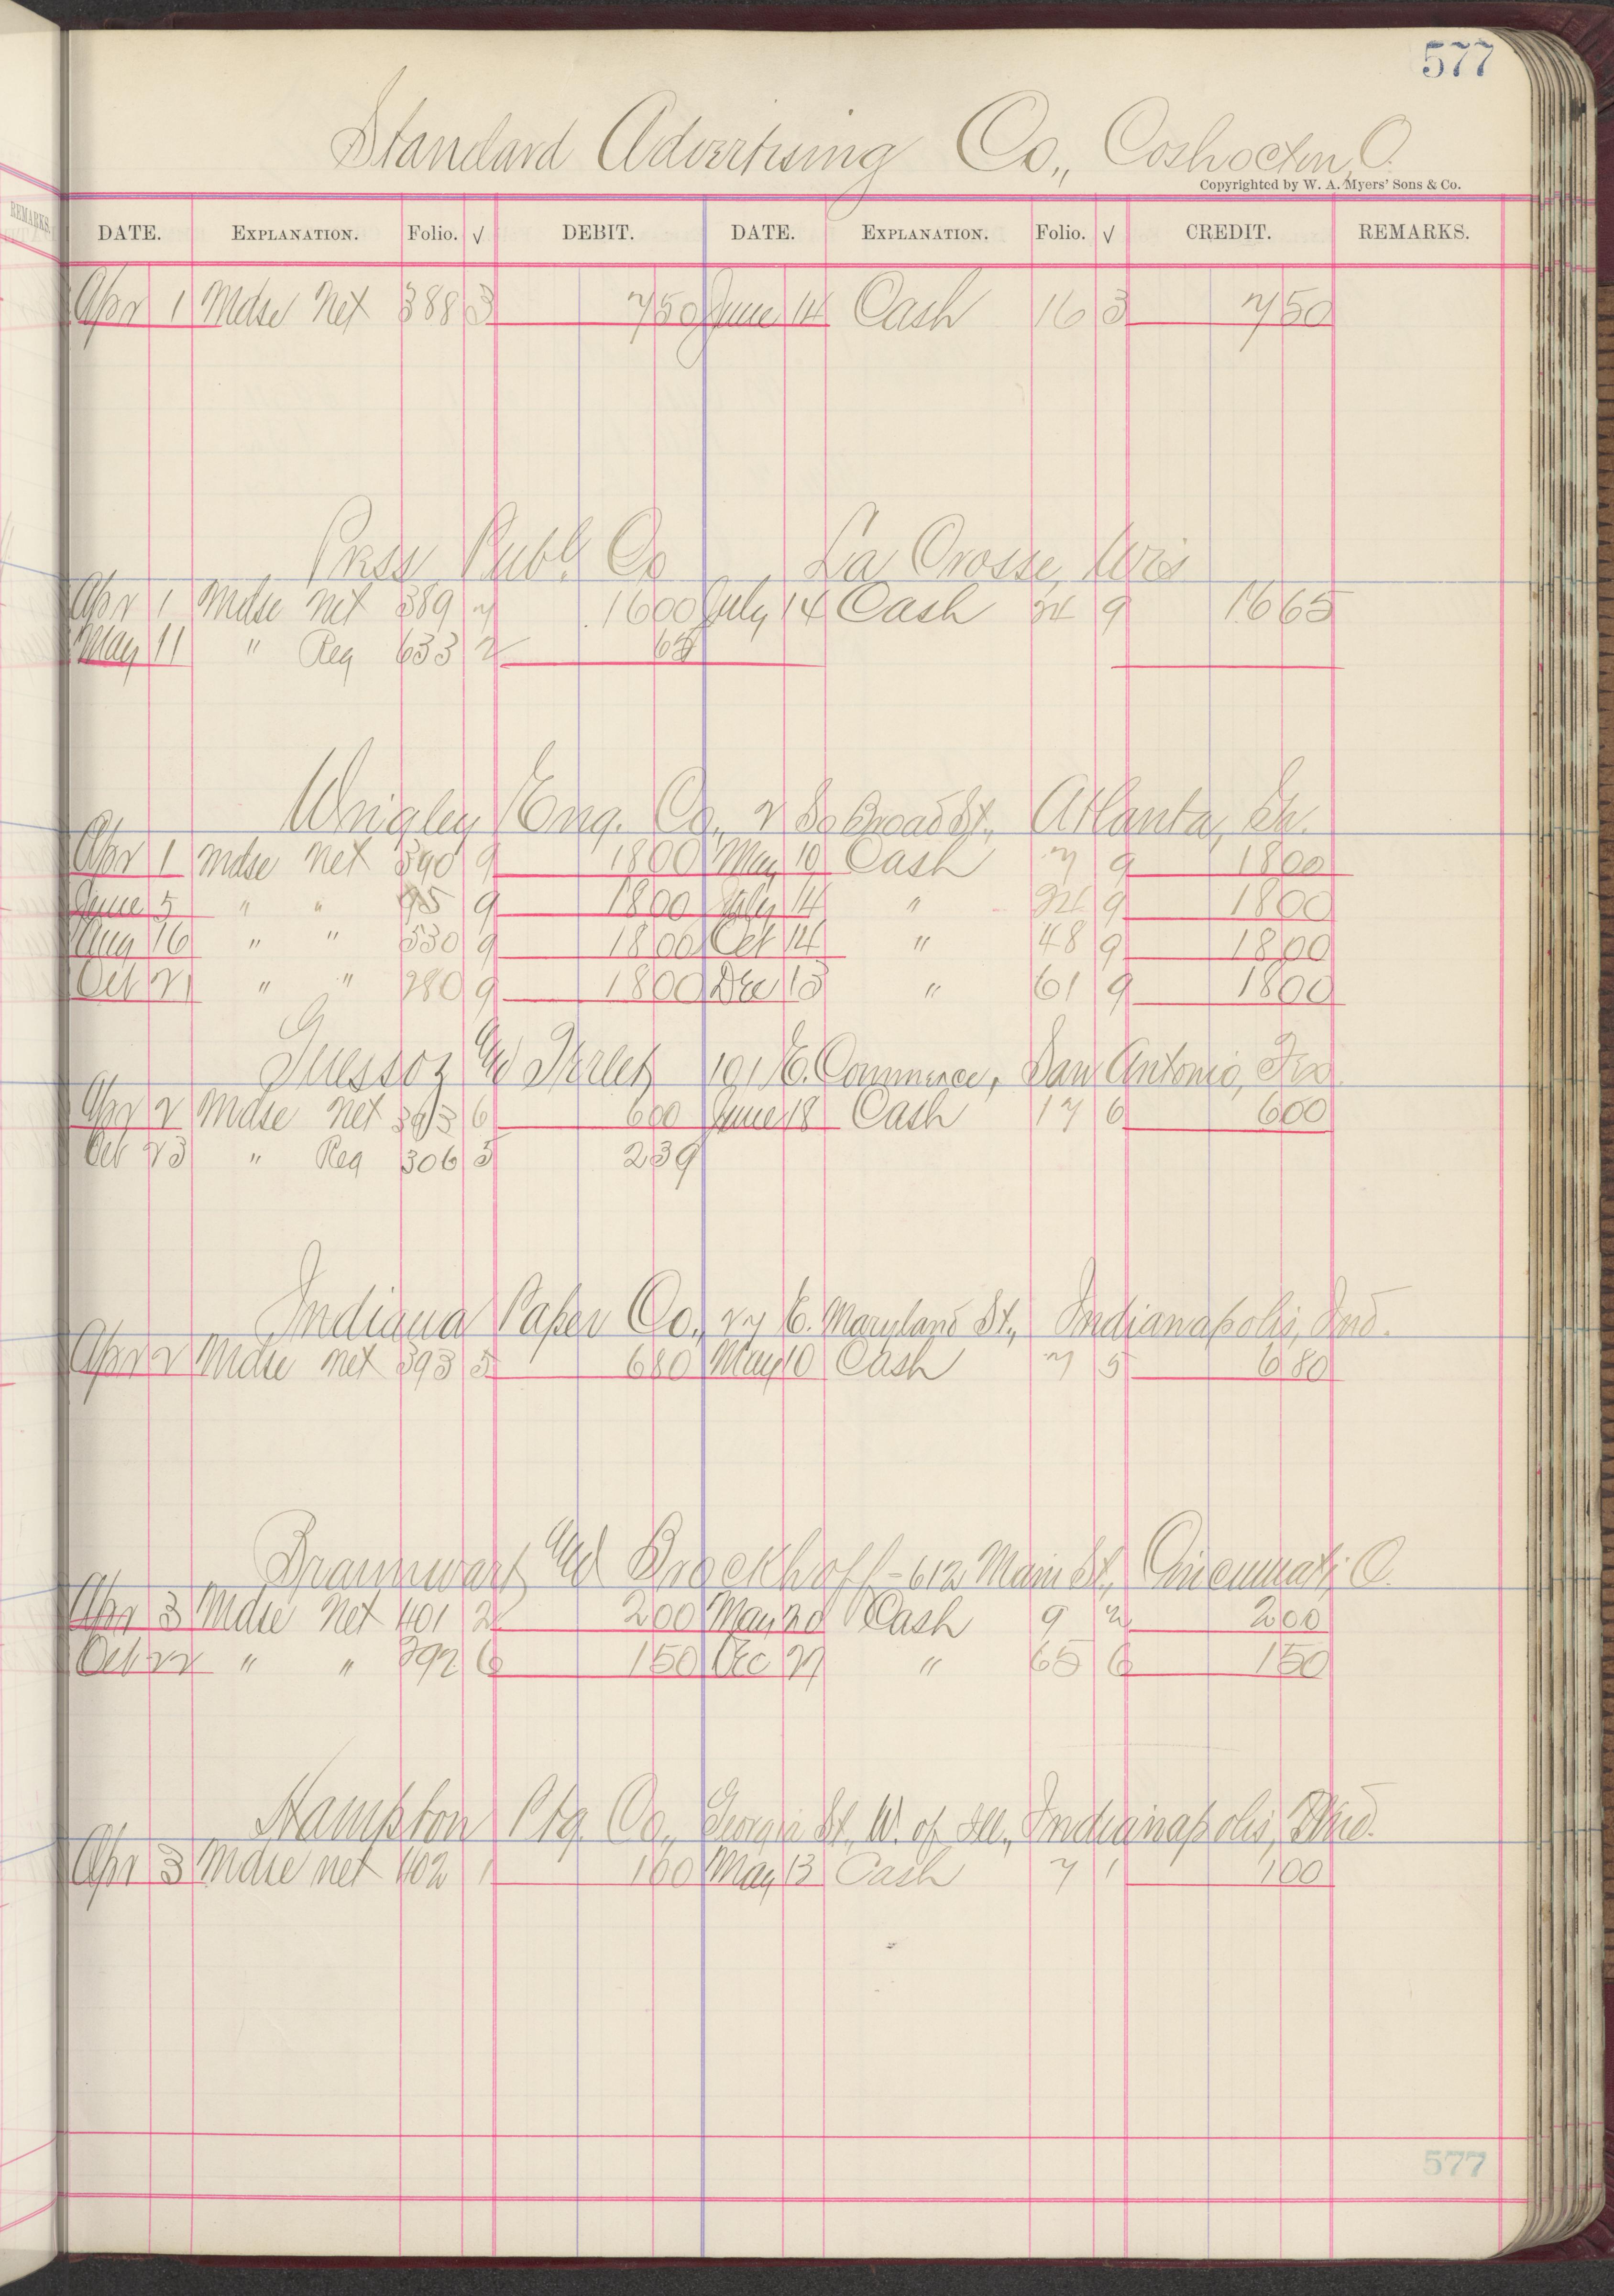 577
Standard Advertising Co., Coshocton, O.
Copyrighted by W. A. Myers' Sons & Co.
DATE. EXPLANATION. Folio. √ DEBIT. DATE. EXPLANATION. Folio. √ CREDIT. REMARKS.
Apr 1 Mdse Net 388 3 750 June 14 Cash 16 3 750
Press Publ. Co La Crosse, Wis
Apr 1 Mdse Net 389 7 1600 July 14 Cash 34 9 1665
May 11 " Reg 633 2 65
Wrigley Eng. Co., 2 So Broad St., Atlanta, Ga.
Apr 1 Mdse Net 390 9 1800 May 10 Cash 7 9 1800
June 5 " " 95 9 1800 July 14 " 34 9 1800
Aug 16 " " 530 9 1800 Oct 14 " 48 9 1800
Oct 21 " " 280 9 1800 Dec 13 " 61 9 1800
& 191 E. Commerce, San Antonio, Tex
Apr 2 Mdse Net 393 6 600 June 18 Cash 17 6 600
Oct 23 " Reg 306 5 239
Indiana Paper Co., 27 E. Maryland St., Indianapolis, Ind.
Apr 2 Mdse Net 393 5 680 May 10 Cash 7 5 680
Braunwart & Brockhoff - 612 Main St., Cincinnati, O.
Apr 3 Mdse Net 401 2 200 May 20 Cash 9 2 200
Oct 22 " " 292 6 150 Dec 27 " 65 6 150
Hampton Ptg Co., Georgia St. W. of Ill., Indianapolis, Ind.
Apr 3 Mdse net 402 1 100 May 13 Cash 7 1 100
577